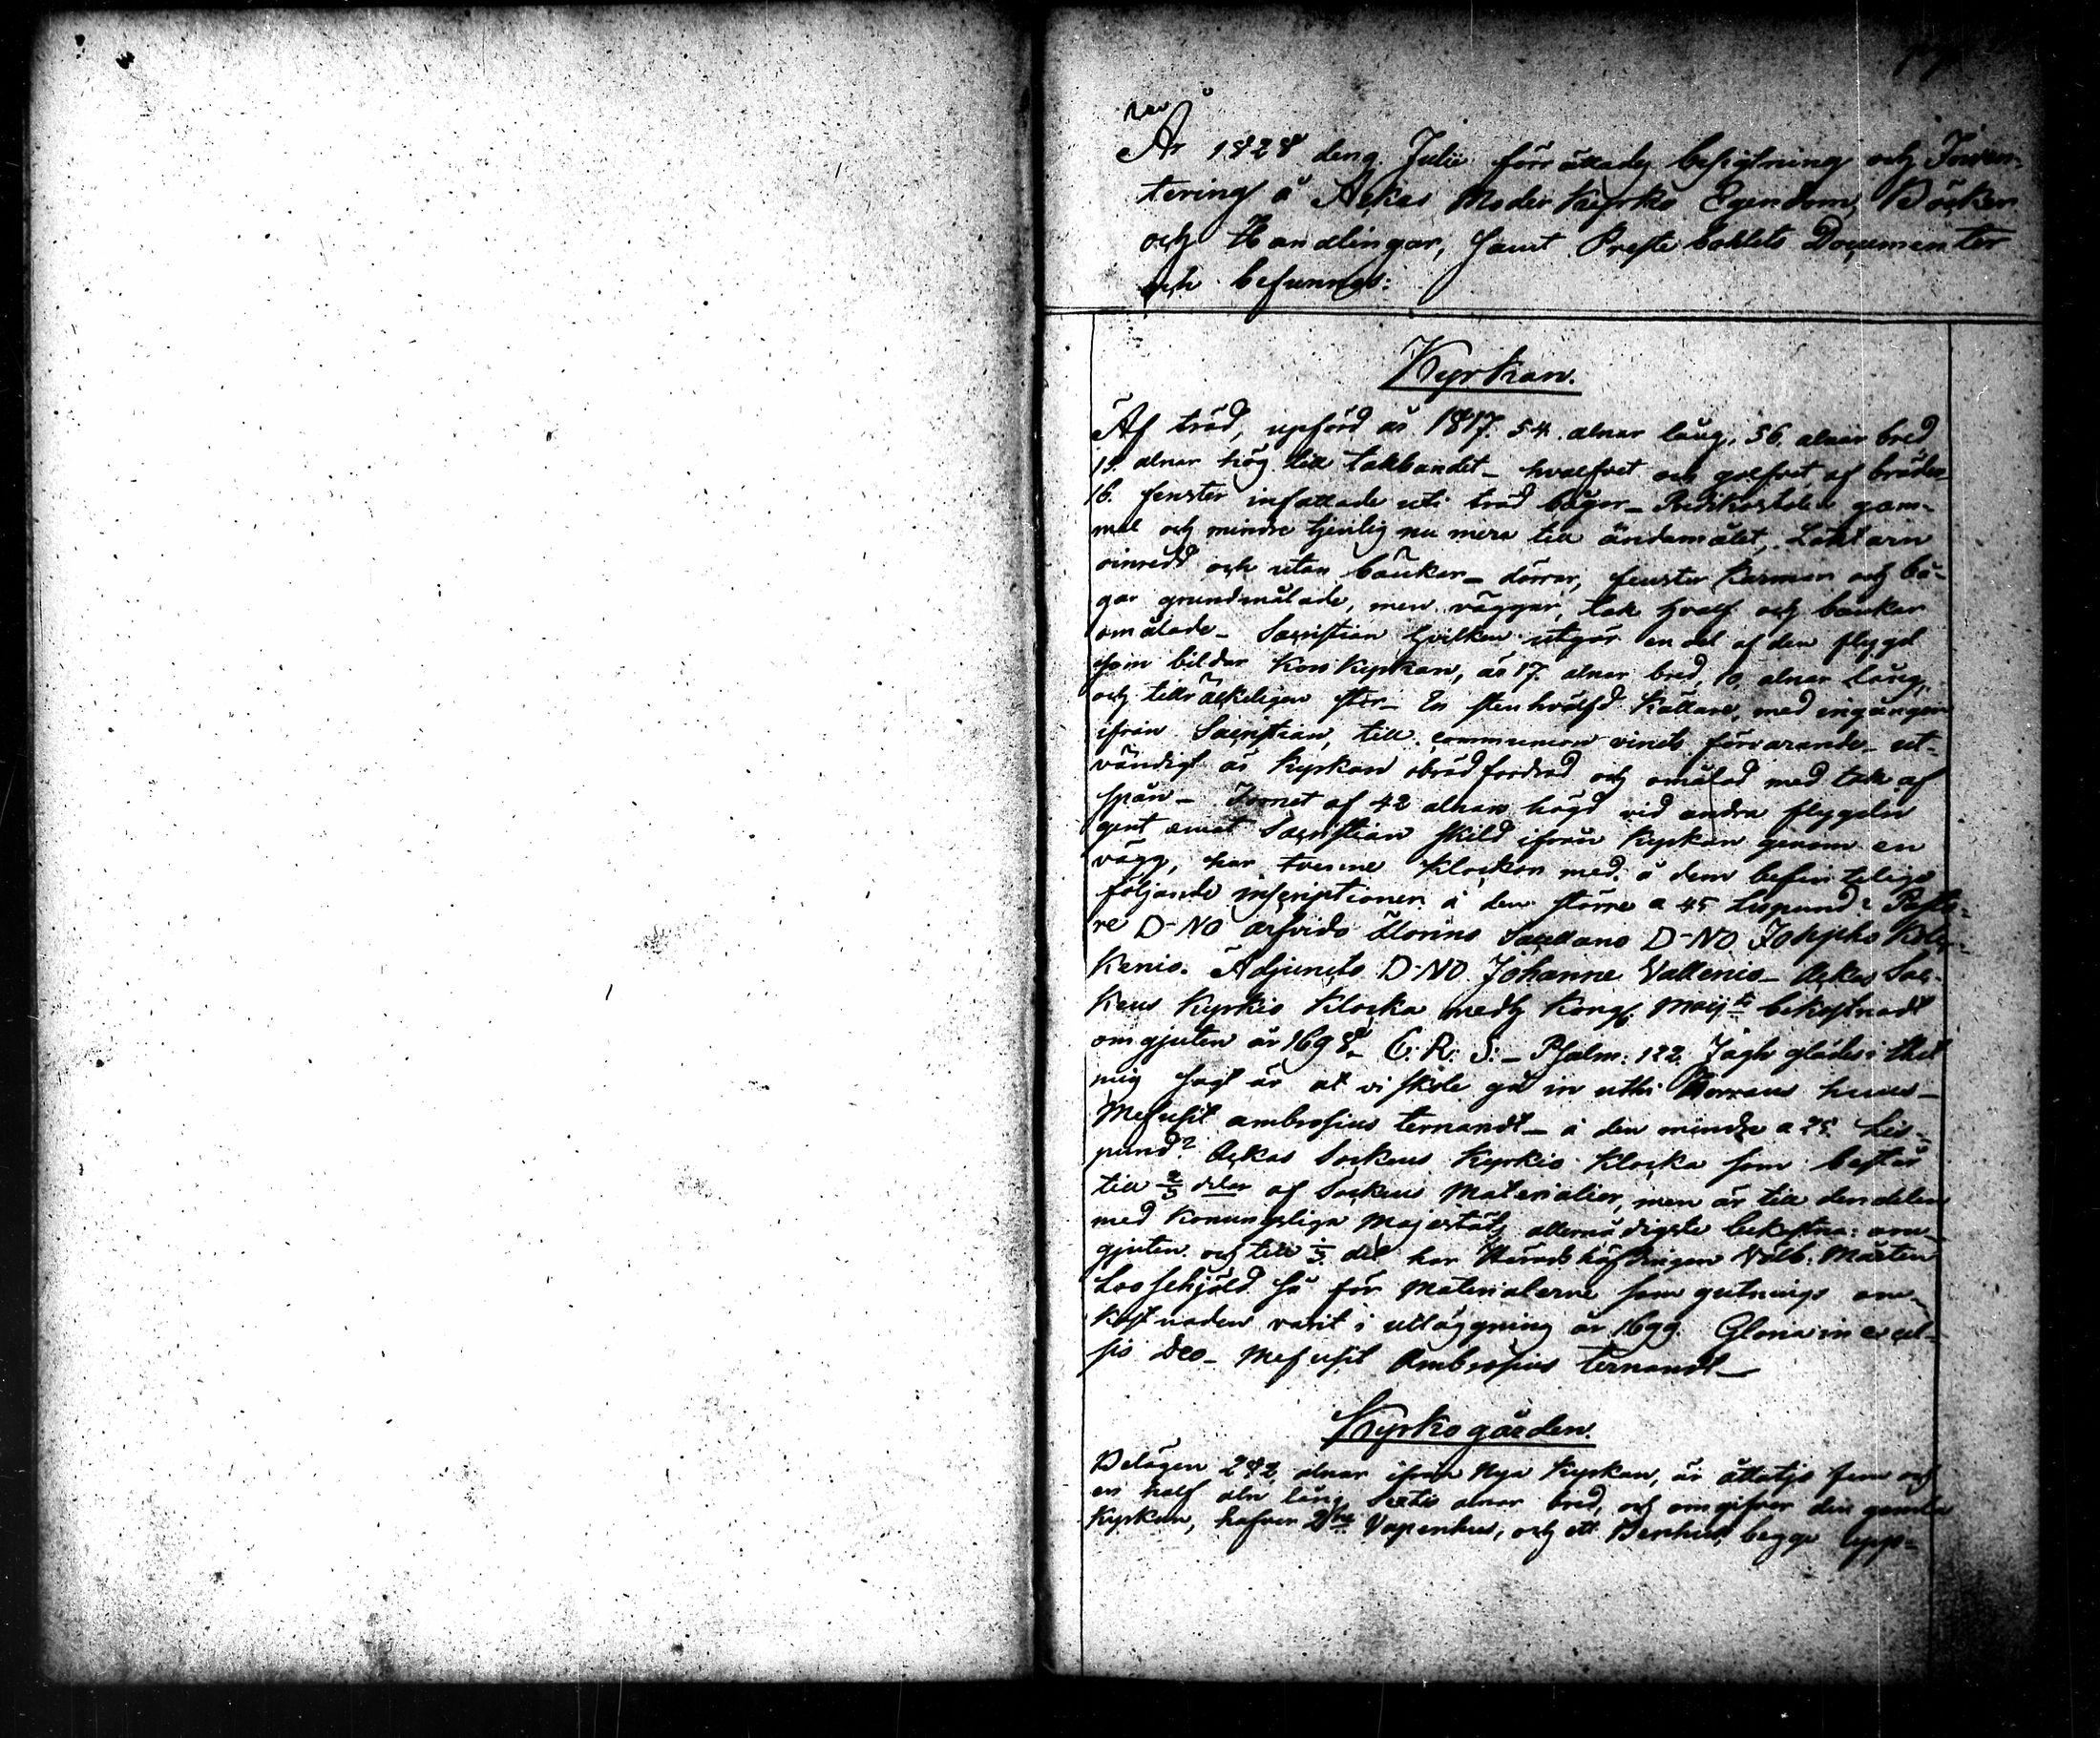 År 1828 den 9. Julii förrättades besigtning och Inven-
tering å Ackas Moder Kyrko Egendom, Böcker
och Handlingar, samt Preste bohlets Documenter
och befunnos:
Kyrkan.
Af träd, upförd år 1817. 54. alnar lång, 56 alnar bred
15 alnar hög till takbandet – hvalfvet och golfvet af bräder
16. fenster infattade uti träd bågar – Predikostolen gam-
mal och mindre tjenlig nu mera till ändamålet, Läktarn
oinredd och utan bänkar – dörrar, fenster karmar och bå-
gar grundmålade, men väggar, tak hvalf och bänkar
omålade – Sacristian hvilken utgör en del af den flygel
som bildar Korskyrkan, är 17. alnar bred, 10 alnar lång,
och tillräckeligen stor – En stenhvälfd källare, med ingången
ifrån Sacristian, till communion vinets förvarande – ut-
vändigt är Kyrkan obrädfodrad och omålad med tak af
spån – Tornet af 42 alnars högd vid andra flygeln
gent emot Sacristian skild ifrån Kyrkan genom en
vägg, har tvenne Klockor med å dem befinteliga
följande inscriptioner å den större a 45 Lispund: Pasto-
re D-NO Arfvido Sacellano D-NO Josepho
Adjuncto D-NO Johanne Vallenio – Ackas Soc-
kens Kyrkio Klocka medh Kongl Maij:ts bekostnadt
omgjuten år 1698 – C: R: S: – Psalm: 122. Jagh glädes i thet
mig sagt är at vi skole gå in uthi Herrans huus –
Me fusit ambrosius ternandt – å den mindre a 25. Lis-
pund: Ackas Sockens Kyrkio Klocka som består
till 2/3 delar af Sockens Materialier, men är till den delen
med Konungsliga Majestäts allernådigste bekostna: om-
gjuten och till 1/3 del har Häradshöfdingen Välb: Mårten
så för Materialerne som gutnings om-
kostnaden varit i utläggning år 1699. Gloria in excel-
sis Deo – Me fusit Ambrosius ternandt –
Kyrkogården.
Belägen 242 alnar ifrån Nya Kyrkan, är åttatijo fem och
en half aln lång Sextio alnar bred, och omgifver den gamla
Kyrkan, hafver 2ne Vapenhus, och ett Benhus, begge upp-